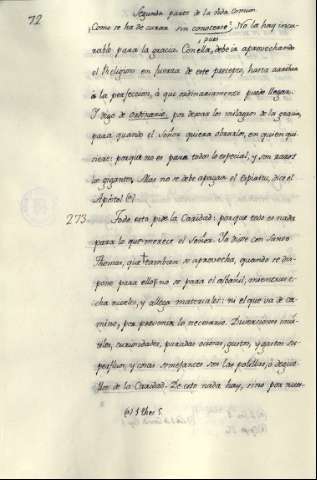 72
Segunda parte de la vida comun.
Como se ha de curar sin conocerse? No la hay incu-
pues
rable para la gracia. Con ella, debe ir aprovechando
el Religioso en fuerza de este precepto, hasta arribar
à la perfeccion, à que ordinariamente puede llegar.
Y digo de ordinario, por dejar los milagros de la gracia,
para quando el Señor quiera obrarlos, en quien qui-
siere: porque no es para todos lo especial, y son raros
los gigantes. Mas no se debe apagar el Espiritu, dice el
Apostol (a)
273. Todo esto pide la Caridad: porque todo es nada
para lo que merece el Señor. Ya dixe con Santo
Thomas, que tambien se aprovecha, quando se dis-
pone para ello; no se para el albañil, mientras e-
cha niveles, y allega materiales: ni el que va de ca-
mino, por prevenir lo necesario. Diversiones inu-
tiles, curiosidades, paradas ociosas, gustos, y gastos su-
perfluos, y cosas semejantes son las polillas, ò degue-
llos de la Caridad. De esto nada hay, sino por nues-
(a) 1 Thes 5.